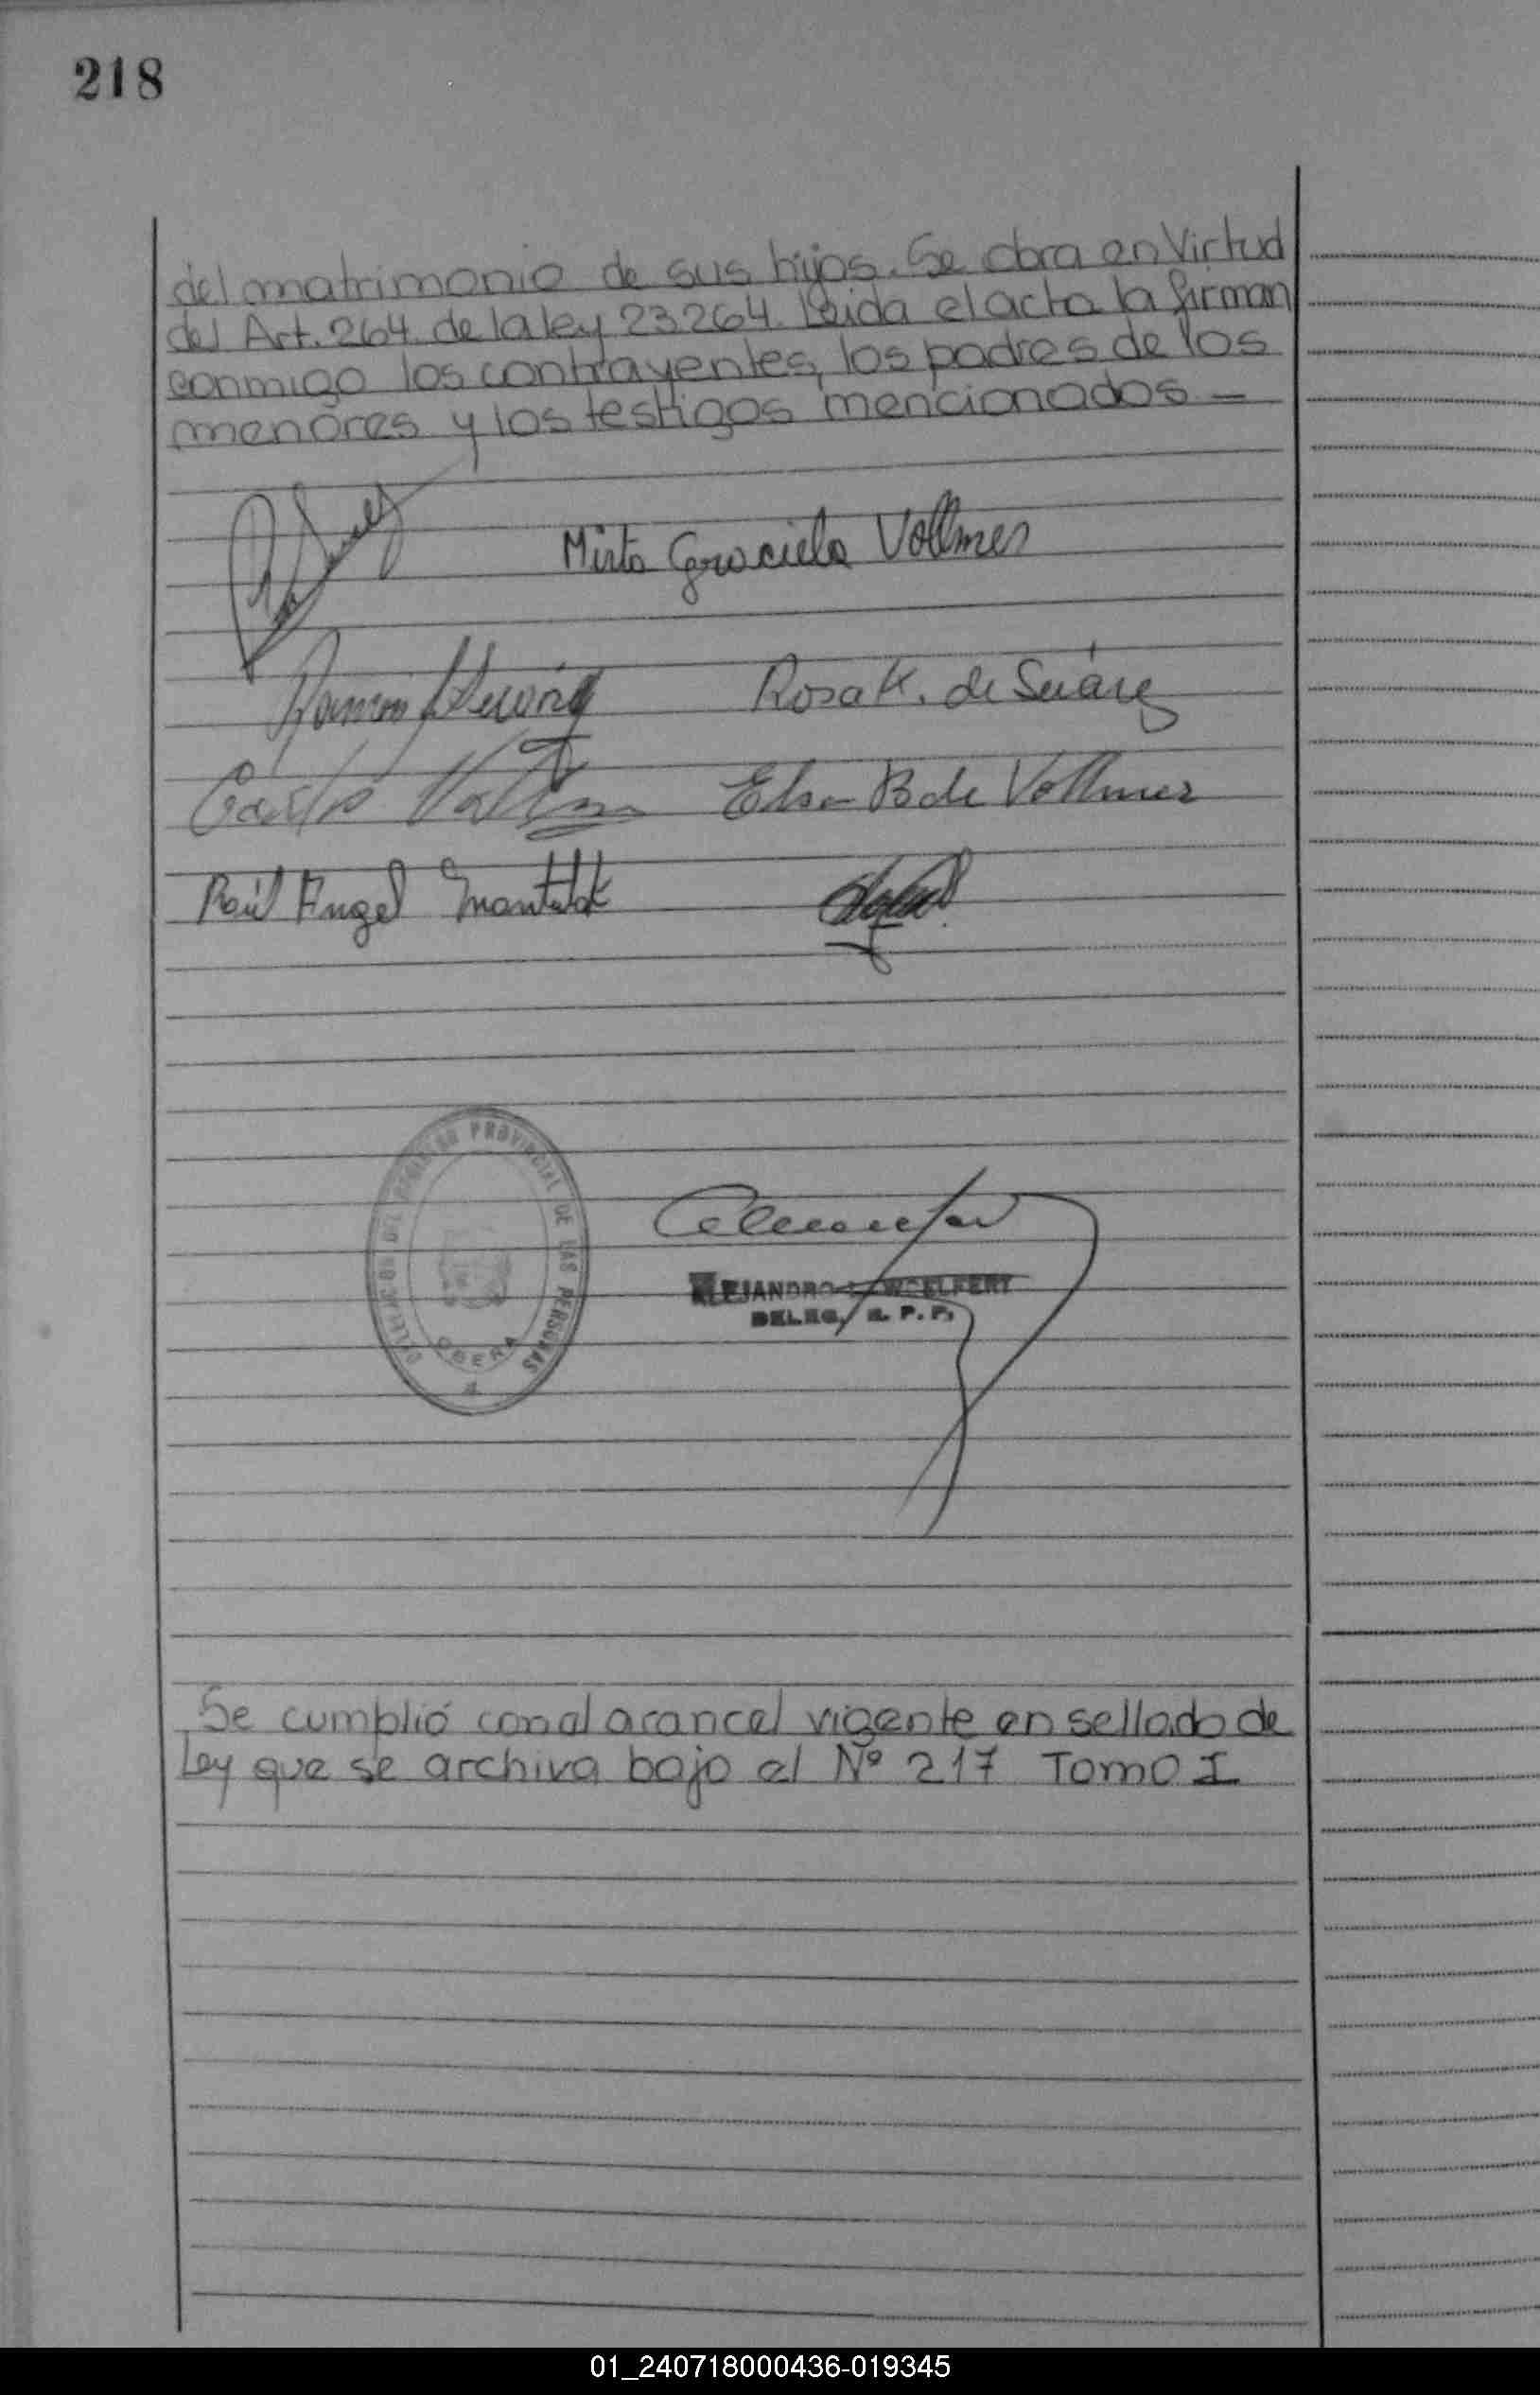 218
del matrimonio de sus hijos. Se obra en Virtud
del Art. 264 de la ley 23264. Leida el acta la firman
conmigo los contrayentes, los padres de los
menores y los testigos mencionados —
Mirta Graciela Vollmer
Ramón
Rosa K. de Suárez
Carlos Vollmer Elsa B de Vollmer
Raúl Angel
DELEGACION DEL REGISTRO PROVINCIAL DE LAS PERSONAS
OBERA
ALEJANDRO WOELFERT
DELEG. R. P. P.
Se cumplió con el arancel vigente en sellado de
Ley que se archiva bajo el Nº 217 Tomo I
01_240718000436-019345